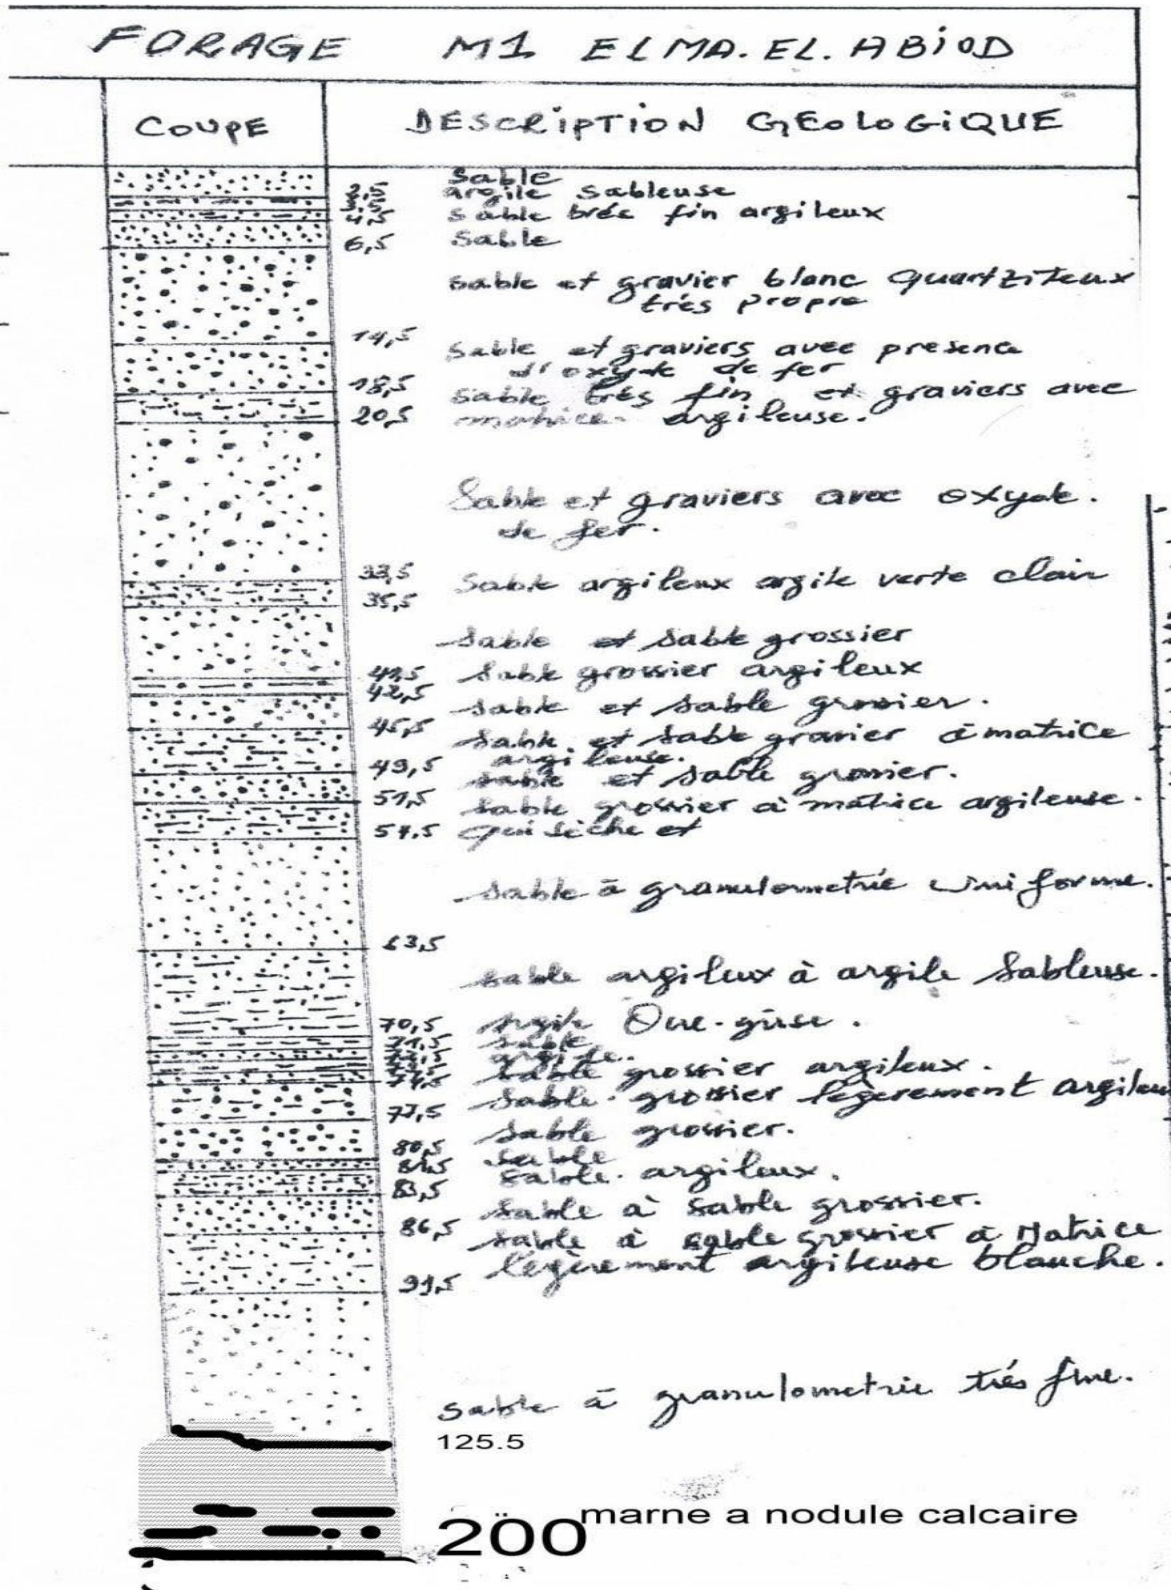 FORAGE M1 ELMA.EL.ABiOD
COUPE DESCRiPTION GEOLOGiQUE
Sable
2,5 argile sableuse
3,5
4,5 sable très fin argileux
6,5 Sable
sable et gravier blanc Quartziteux
très propre
14,5
Sable et graviers avec presence
d'oxyde de fer
18,5 sable très fin et graviers avec
20,5 matrice argileuse.
Sable et graviers avec oxyde.
de fer.
33,5 Sable argileux argile verte clair
35,5
sable et sable grossier
41,5 sable grossier argileux
42,5
sable et sable grossier.
45,5 sable et sable gravier à matrice
argileuse.
49,5 sable et sable grossier.
51,5 sable grossier à matrice argileuse.
57,5 qui sèche et
sable à granulometrie uniforme.
63,5
sable argileux à argile Sableuse.
70,5 argile
71,5 sable
argile.
74,5 sable grossier argileux.
77,5 sable grossier légèrement argileu
sable grossier.
80,5 sable
81,5 sable argileux.
83,5
sable à sable grossier.
86,5 sable à sable grossier à Matrice
légèrement argileuse blanche.
91,5
sable à granulometrie très fine.
125.5
marne a nodule calcaire
200